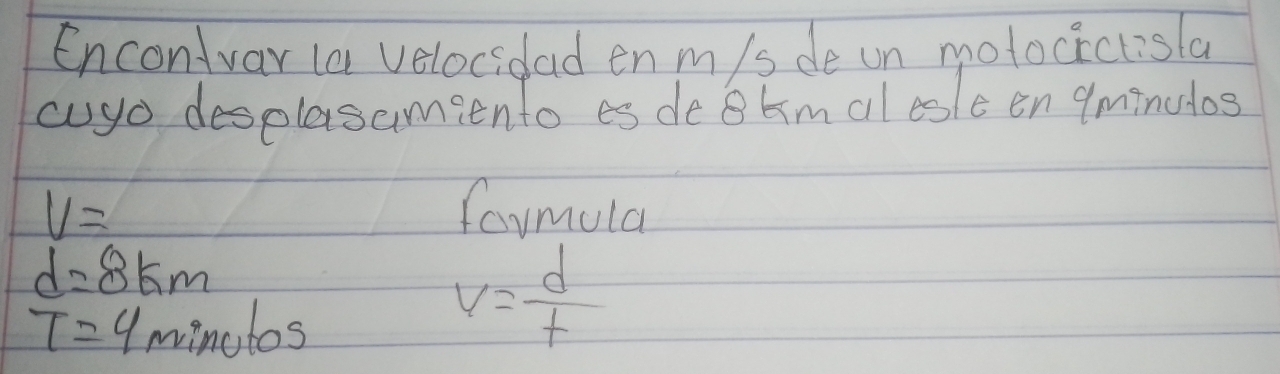 Encontrar la velocidad en m/s de un motociclista
cuyo desplasamiento es de 8 km al este en 4 minutos
V= formula
d=8km
V=d/t
T=4 minutos